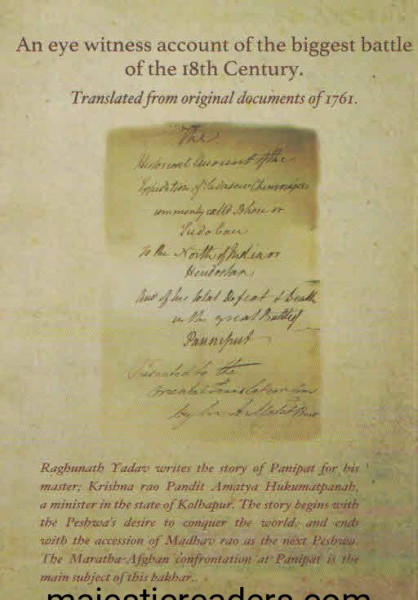 An eye witness account of the biggest battle
of the 18th Century.
Translated from original documents of 1761.
The
Historical Account of the
Expedition of Sadasew Chimnajee
commonly calld Bhow or
Sudoba
to the North of India or
Hindostan
And of his total Defeat & Death
in the great Battle of
Panniput
Presented to the
Oriental Translation
by Sir
Raghunath Yadav writes the story of Panipat for his
master; Krishna rao Pandit Amatya Hukumatpanah,
a minister in the state of Kolhapur. The story begins with
the Peshwa's desire to conquer the world and ends
with the accession of Madhav rao as the next Peshwa.
The Maratha-Afghan confrontation at Panipat is the
main subject of this bakhar.
majesticreaders.com